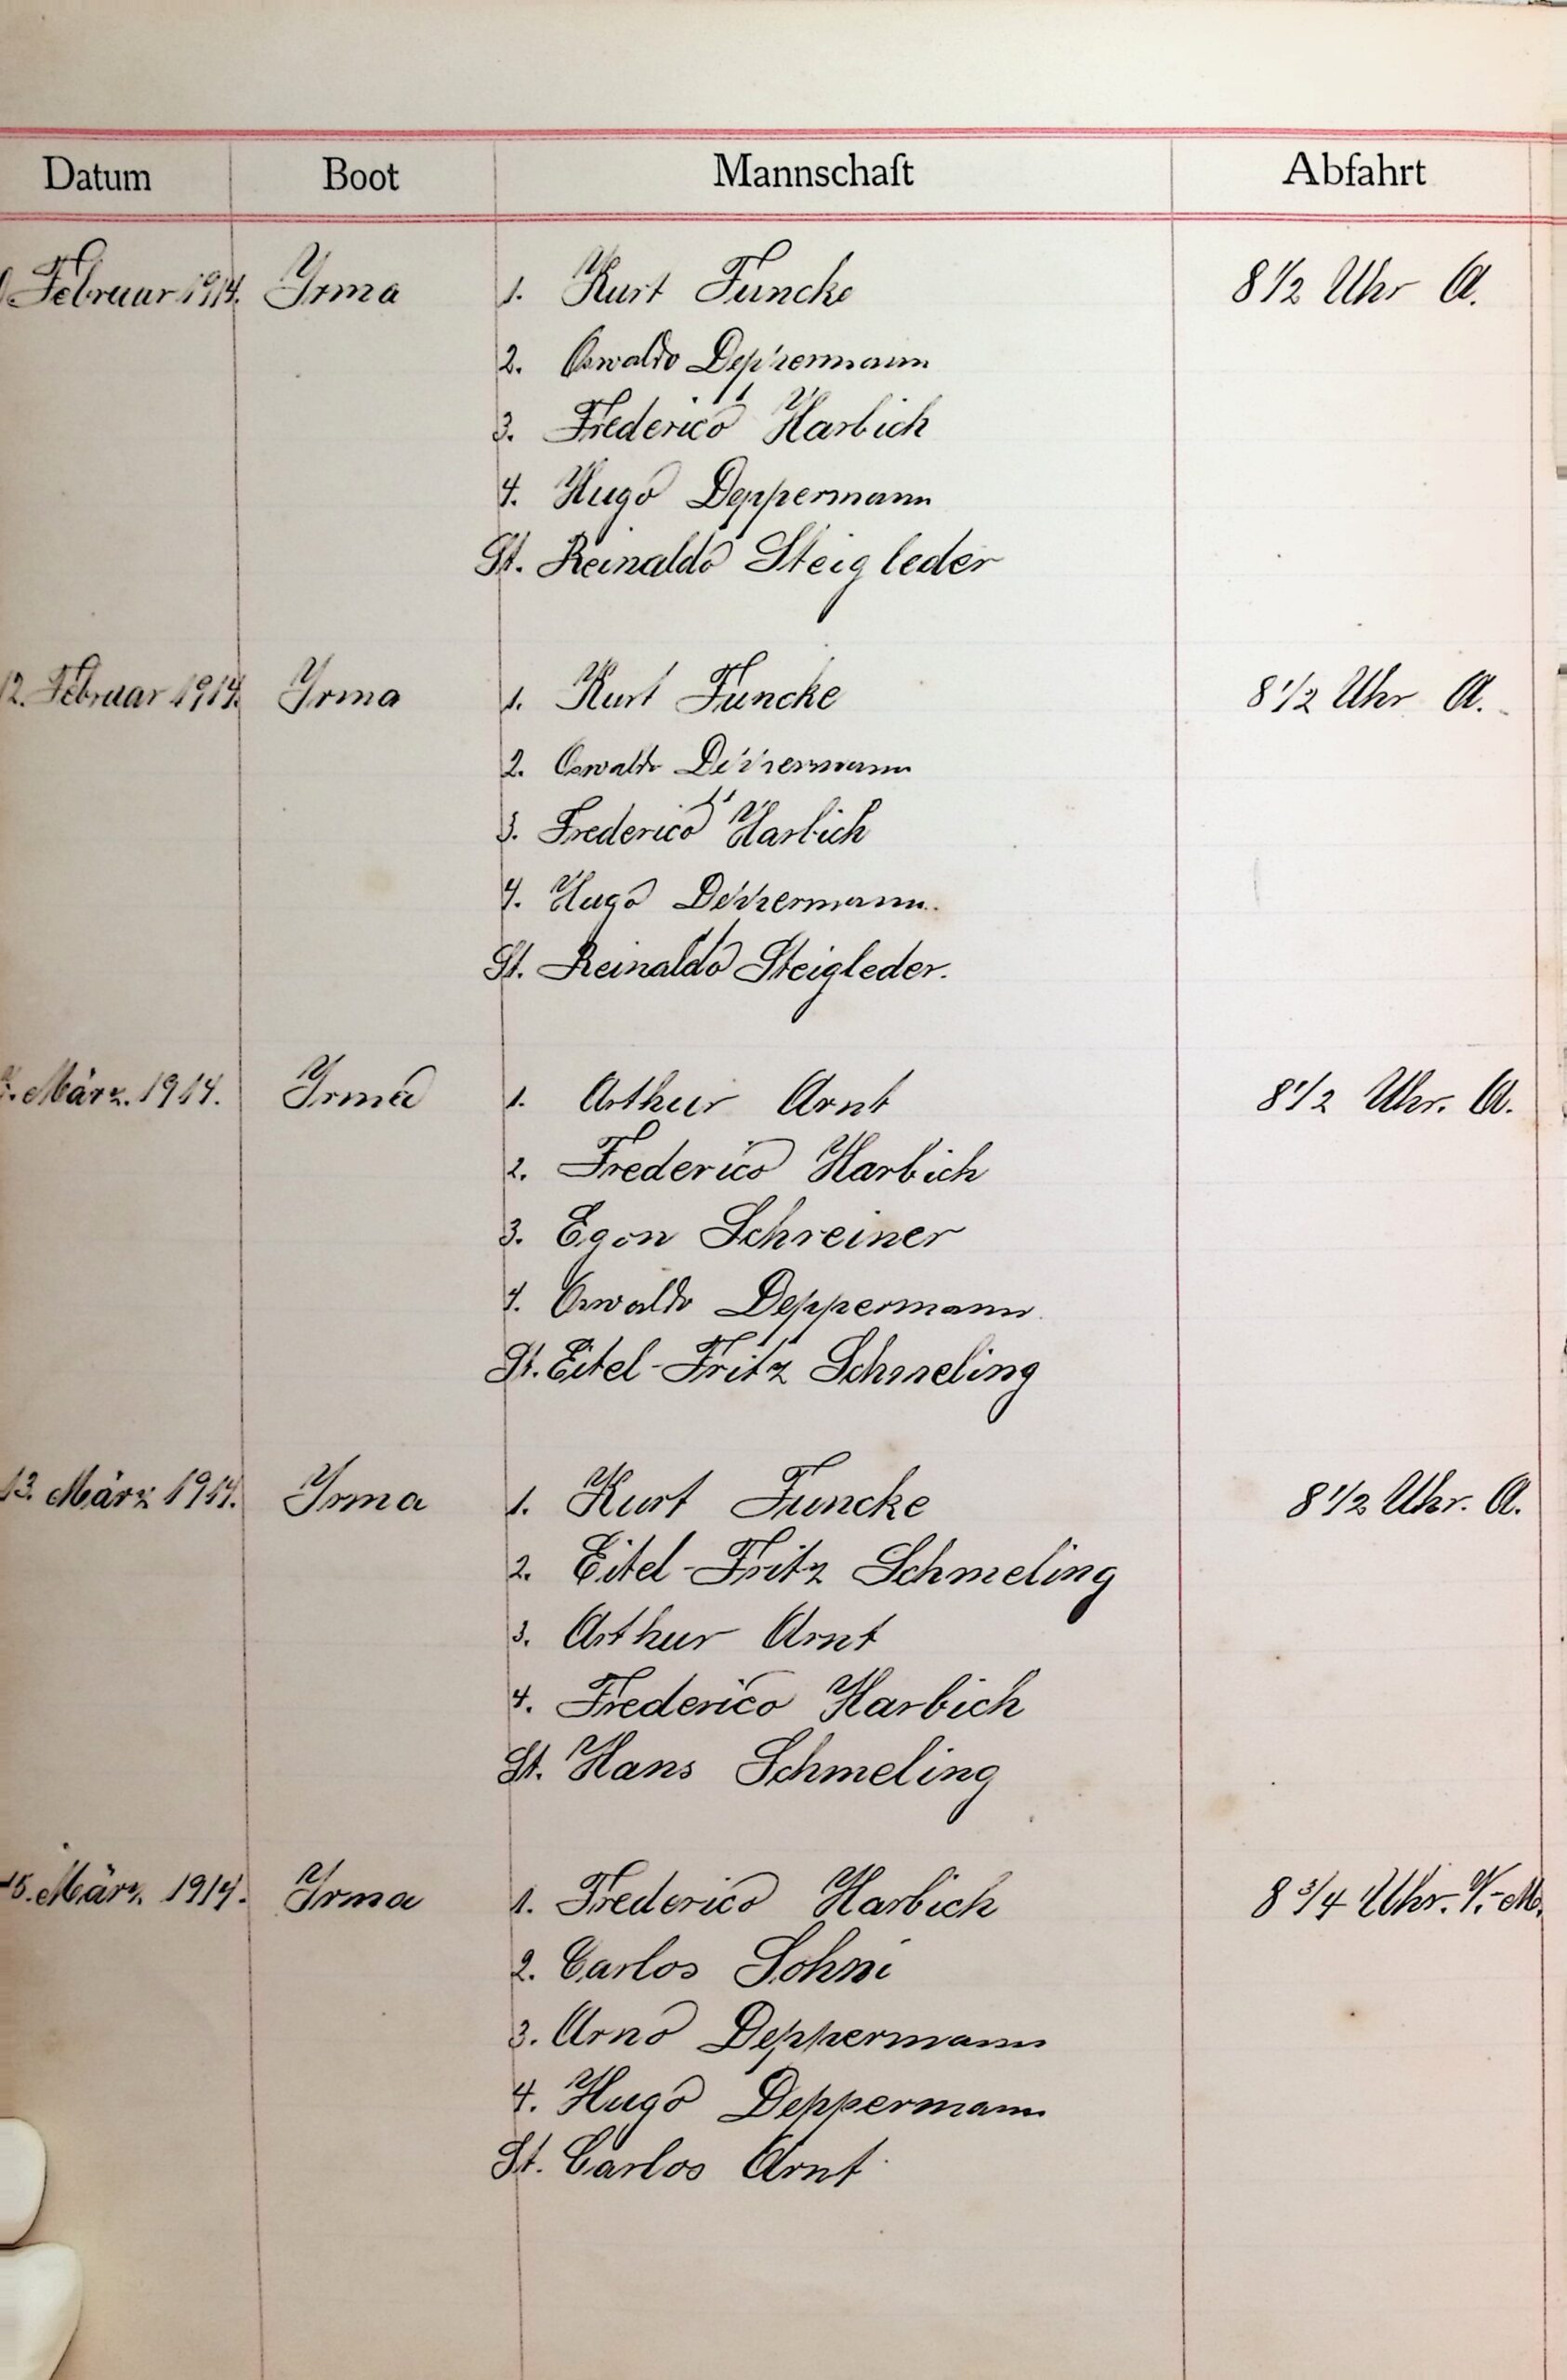 Datum Boot Mannschaft Abfahrt
Februar 1914. Irma 1. Kurt Funcke 8 1/2 Uhr A.
2. Oswaldo Deppermann
3. Frederico Harbich
4. Hugo Deppermann
St. Reinaldo Steigleder
12. Februar 1914. Irma 1. Kurt Funcke 8 1/2 Uhr A.
2. Oswaldo Deppermann
3. Frederico Harbich
4. Hugo Deppermann.
St. Reinaldo Steigleder.
März. 1914. Irma 1. Arthur Arnt 8 1/2 Uhr. A.
2. Frederico Harbich
3. Egon Schreiner
4. Oswaldo Deppermann.
St. Eitel-Fritz Schmeling
13. März 1914. Irma 1. Kurt Funcke 8 1/2 Uhr. A.
2. Eitel-Fritz Schmeling
3. Arthur Arnt
4. Frederico Harbich
St. Hans Schmeling
15. März. 1914. Irma 1. Frederico Harbich 8 3/4 Uhr. V.-M.
2. Carlos Sohni
3. Arno Deppermann
4. Hugo Deppermann
St. Carlos Arnt